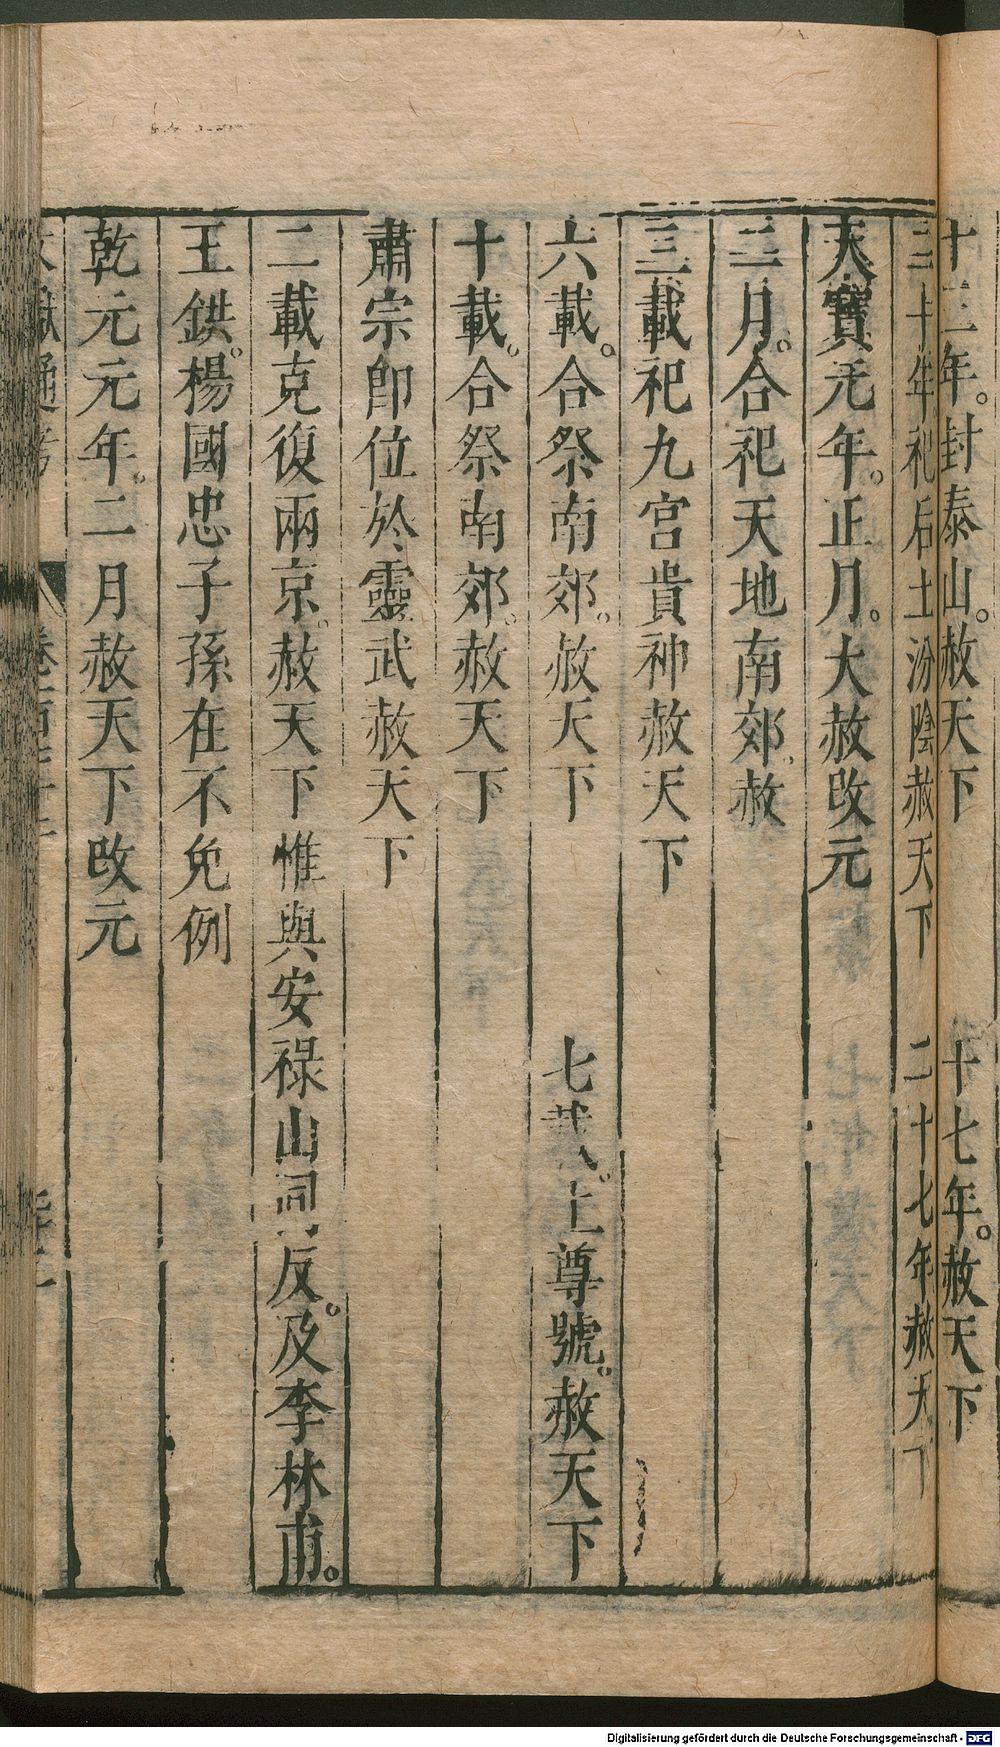 十三年。封泰山。赦天下 十七年。赦天下
二十年祀后土汾陰赦天下 二十七年赦天下
天寶元年。正月。大赦改元
二月。合祀天地南郊。赦
三載祀九宮貴神赦天下
六載。合祭南郊。赦天下 七載。上尊號。赦天下
十載。合祭南郊。赦天下
肅宗即位於靈武赦天下
二載克復兩京。赦天下惟與安祿山同反。及李林甫。
王鉷。楊國忠子孫在不免例
乾元元年。二月赦天下改元
文獻通考 卷一百七十二
Digitalisierung gefördert durch die Deutsche Forschungsgemeinschaft - DFG